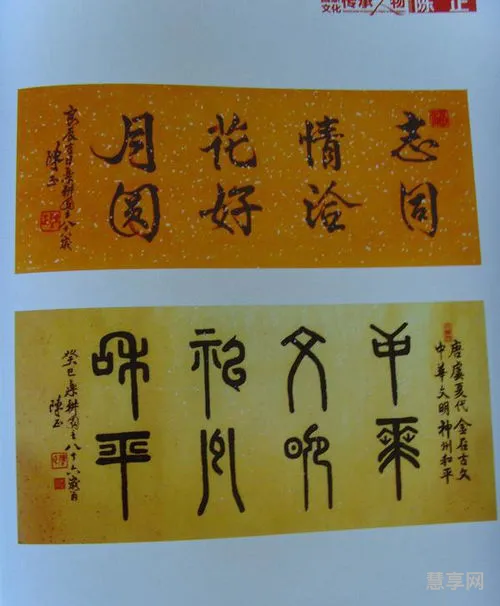 文化传承人物 陈正
志同
情洽
花好
月圆
陳正
唐虞夏代金在古文
中華文明神州和平
中華
文明
神州
和平
癸巳樂耕園主八十六歲書
陳正
慧享网